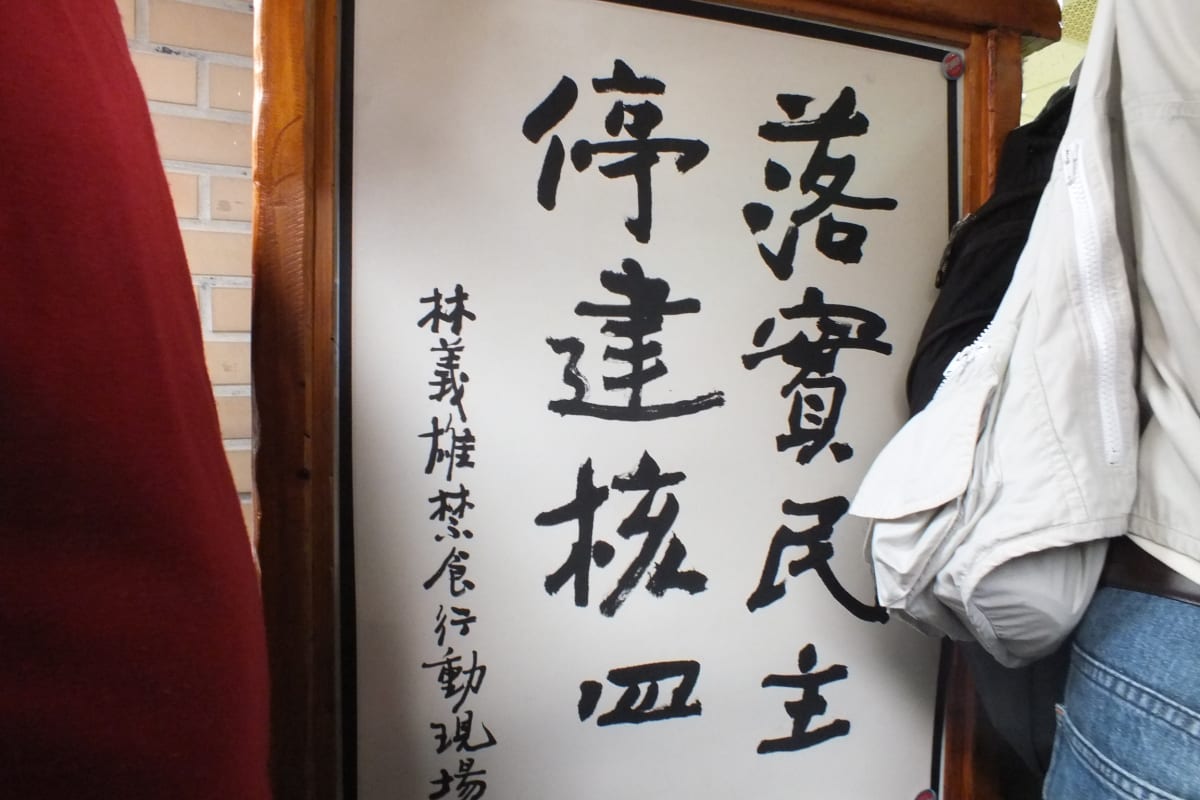 落實民主
停建核四
林義雄禁食行動現場